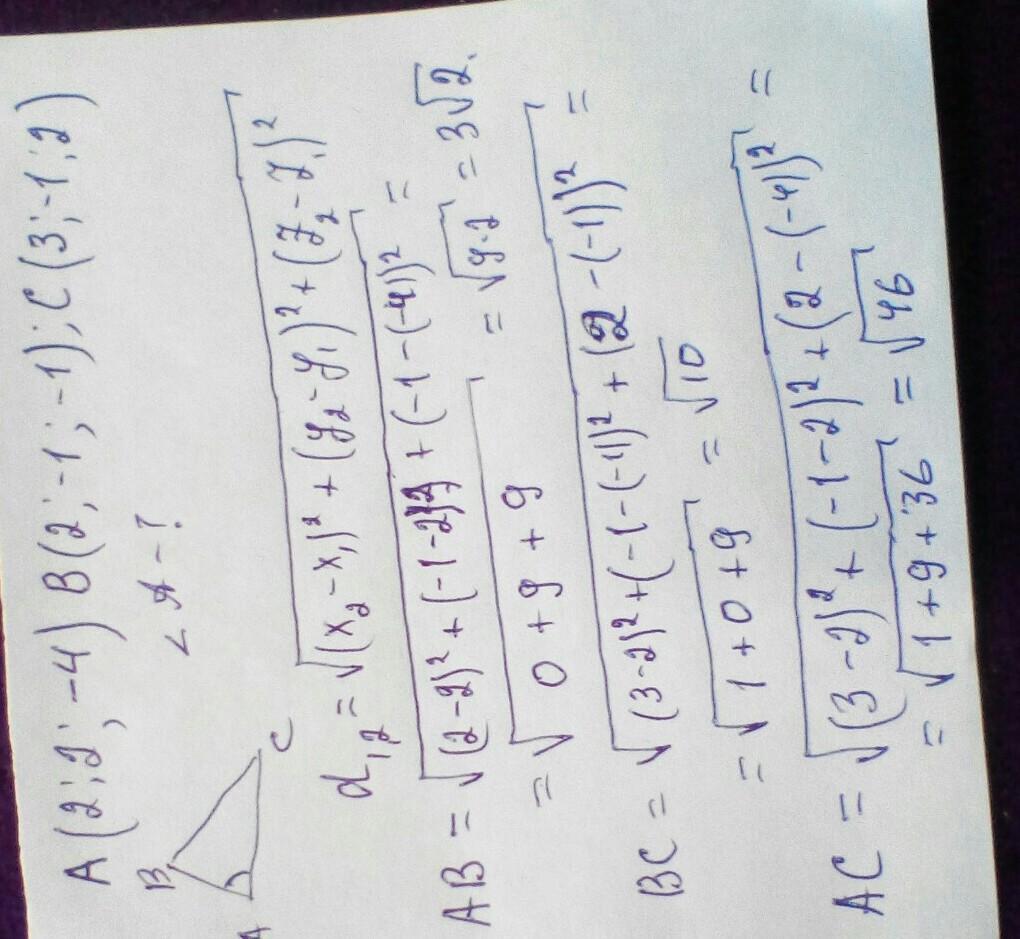 A(2;2;-4) B(2;-1;-1); C(3;-1;2)
<A-?
B
A
C
d₁,₂ = √(x₂-x₁)² + (y₂-y₁)² + (z₂-z₁)²
AB = √(2-2)² + (-1-2)² + (-1-(-4))² =
= √0+9+9 = √9·2 = 3√2.
BC = √(3-2)² + (-1-(-1))² + (2-(-1))² =
= √1+0+9 = √10
AC = √(3-2)² + (-1-2)² + (2-(-4))² =
= √1+9+36 = √46